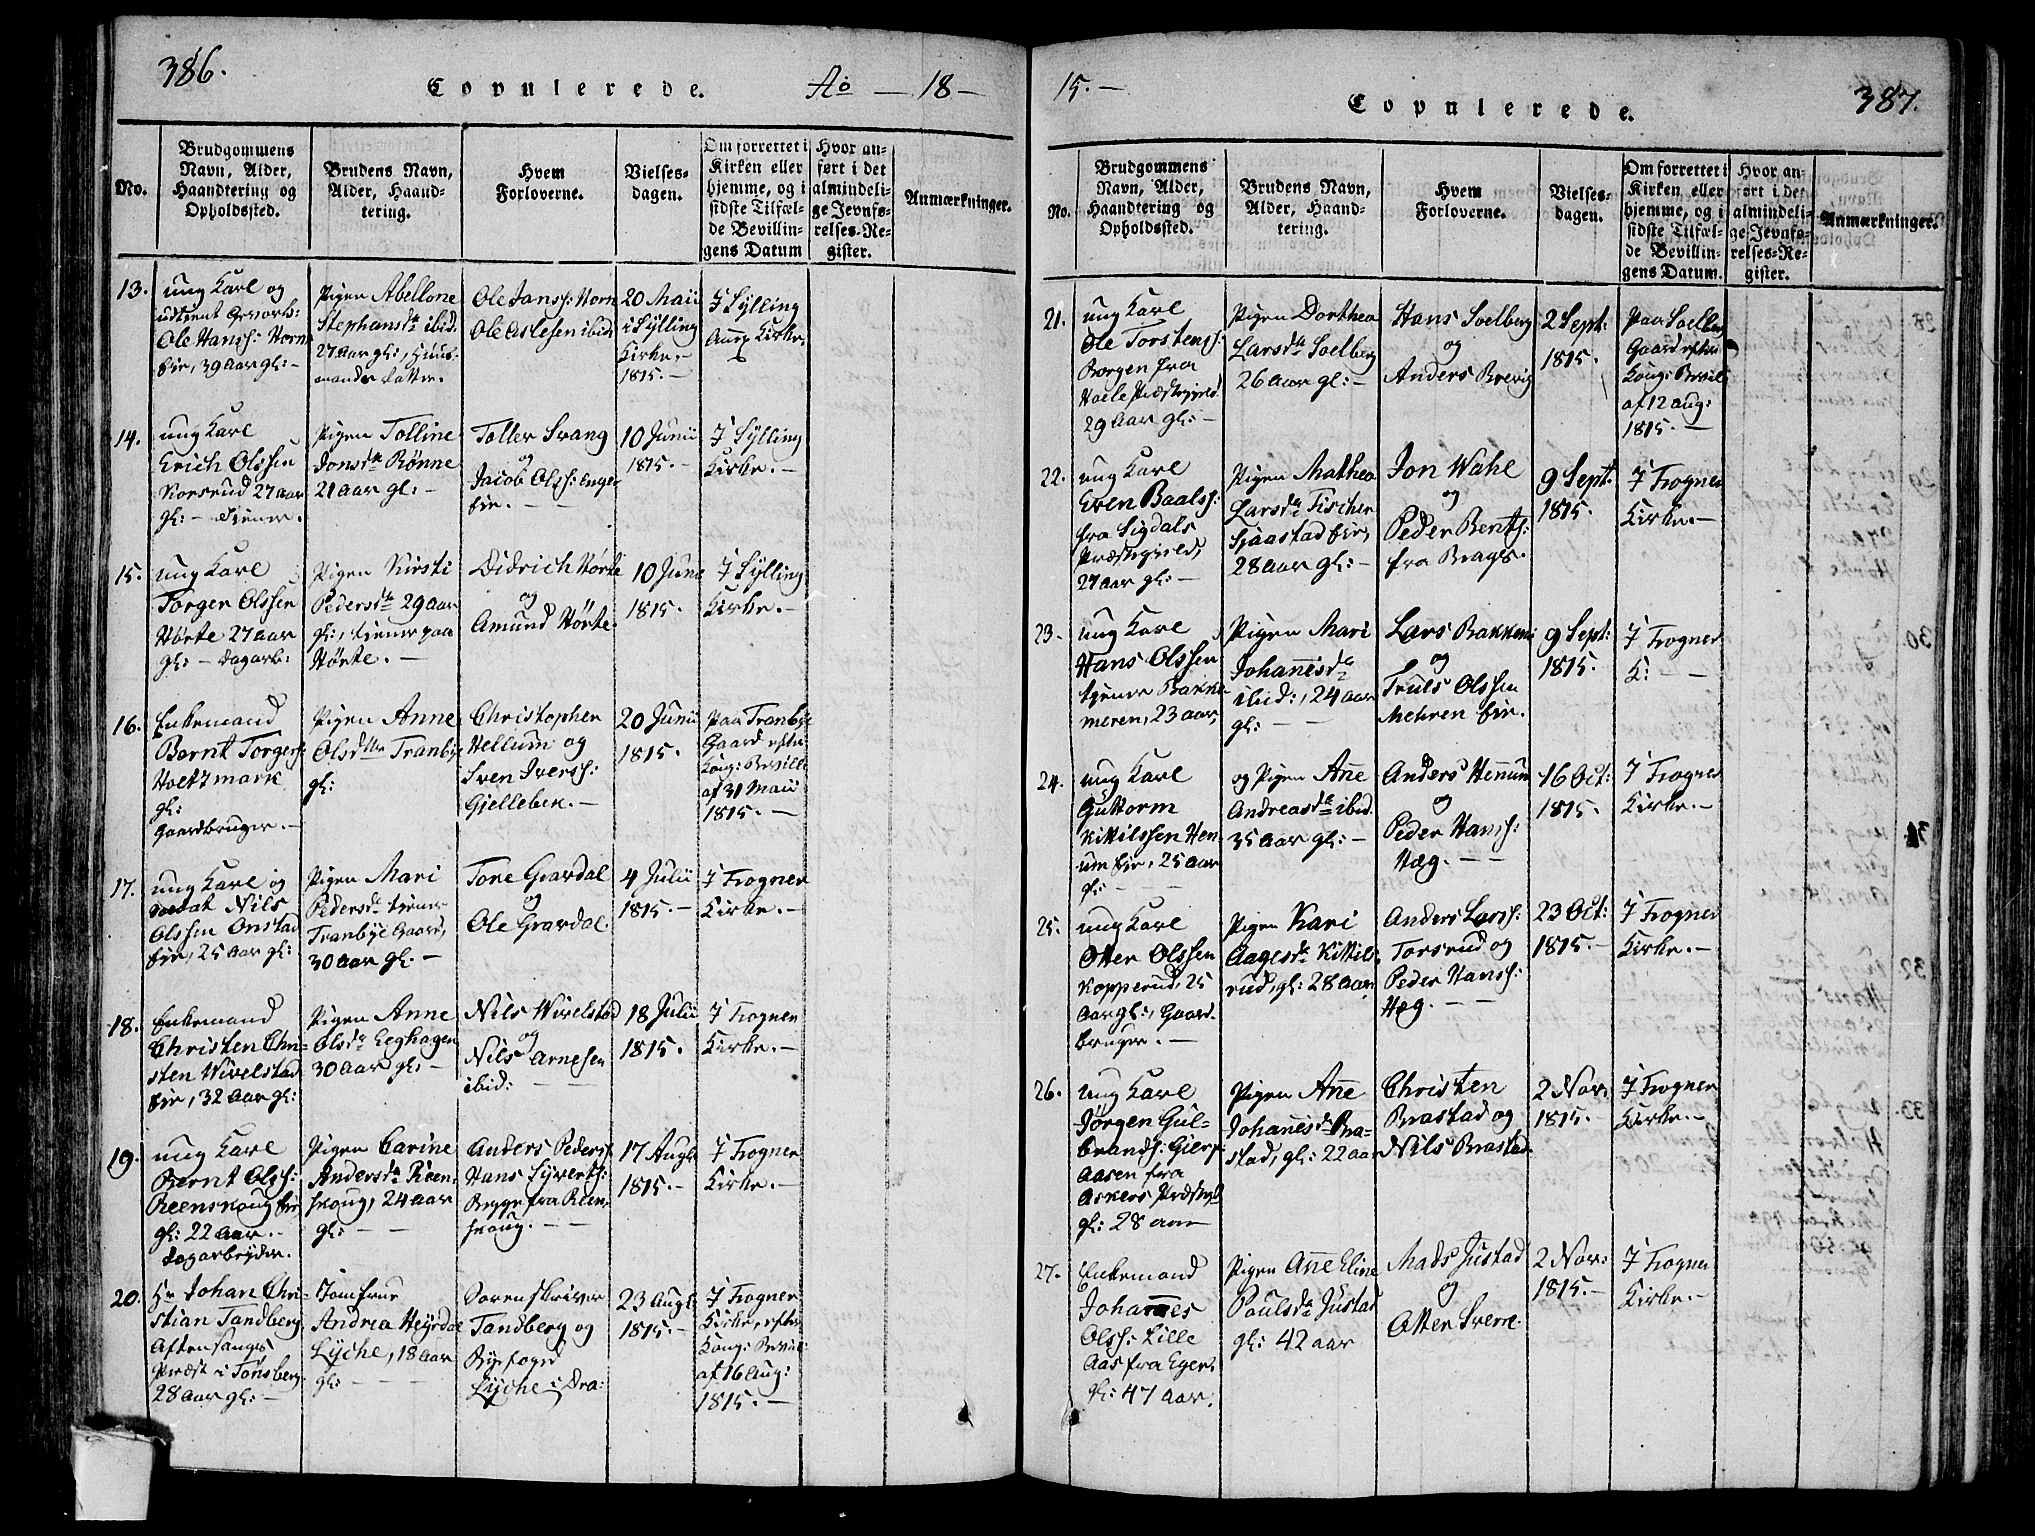 386.
Copulerede.
Ao — 18 —
No.
Brudgommens
Navn, Alder,
Haandtering og
Opholdssted.
Brudens Navn,
Alder, Haand-
tering.
Hvem
Forloverne.
Vielses-
dagen.
Om forrettet i
Kirken eller
hjemme, og i
sidste Tilfæl-
de Bevillin-
gens Datum
Hvor an-
ført i det
almindeli-
ge Jevnfø-
relses-Re-
gister.
Anmærkninger.
13.
ung Karl og
udtient
Ole Hanss: Horn
Eie, 39 Aar gl: —
Pigen Abellone
Stephansdr ibid.
27 Aar gl:, Huus-
mands datter.
Ole Janss: Horn
Ole Aslesen ibid
20 Maii
i Sylling
Kirke. —
1815. —
I Sylling
Kirke.
14.
ung Karl
Erich Olssen
Korsrud 27 aar
gl: — tiener.
Pigen Tolline
Jonsdr Rønne
21 Aar gl: —
Toller Svang
og
Jacob Olss: Enge-
Eie. — —
10 Junii
1815. —
I Sylling
Kirke. —
15.
ung Karl
Torger Olssen
Hørte 27 aar
gl: — dagarb:
Pigen Kirsti
Pedersdr 29 aar
gl:, tiener paa
Hørte. —
Didrich Hørte
og
Amund Hørte.
10 June
1815.
I Sylling
Kirke. —
16.
Enkemand
Bernt Torgers:
Holtzmark
gl:
Gaardbruger. —
Pigen Anne
Olsdtr Tranbye
gl:
Christopher
Hellum og
Sven Ivers:
Gjellebek. —
20 Junii
1815.
paa Tranbye
Gaard efter
Kong: Bevill:
af 31 Maii
1815. —
17.
ung Karl og
Soldat Nils
Olssen Onstad
Eie, 25 Aar gl:
Pigen Mari
Pedersdr tiener
Tranbye Gaard,
30 aar gl. —
Tore Gravdal
og
Ole Gravdal.
4 Julii
1815. —
I Frogner
Kirke. —
18.
Enkemand
Christen Chri-
sten Wivelstad
Eie, 32 Aar gl:
Pigen Anne
Olsdr Eeghagen
30 Aar gl: —
Nils Wivelstad
og
Nils Arnesen
ibid: — —
18 Julii
1815.
I Frogner
Kirke. —
19.
ung Karl
Bernt Olss:
Reenskoug Eie
gl: 22 Aar. —
Dagarbeyder.
Pigen Carine
Andersdr Reen-
skoug, 24 aar
gl: — —
Anders Peders:
Hans Syverts:
Bygge fra Reen-
skoug. — —
17 Augt
1815. —
I Frogner
Kirke. —
20.
Hr Johan Chri-
stian Tandberg
Aftensangs
Præst i Tønsberg
28 Aar gl: —
Jomfrue
Andrea Heyrdal
Lyche, 18 aar
gl: — —
Sorenskriver
Tandberg og
Byefoged
Lyche i Dra:
23 Augt
1815. —
I Frogner
Kirke, efter
Kong: Bevil:
af 16 Aug:
1815. —
15. —
Copulerede.
387.
No.
Brudgommens
Navn, Alder,
Haandtering og
Opholdssted.
Brudens Navn,
Alder, Haand-
tering.
Hvem
Forloverne.
Vielses-
dagen.
Om forrettet i
Kirken eller
hjemme, og i
sidste Tilfæl-
de Bevillin-
gens Datum.
Hvor an-
ført i det
almindeli-
ge Jevnfø-
relses-Re-
gister.
Anmærkninger.
21.
ung Karl
Ole Torstens:
Borgen fra
Hole Præstegield
29 Aar gl: —
Pigen Dorthea
Larsdr Solberg
26 Aar gl: —
Hans Soelberg
og
Anders Brevig
2 Sept:
1815.
paa Soelberg
Gaard efter
Kong: Bevil:
af 12 aug:
1815. —
22.
ung Karl
Even Baals:
fra Sigdals
Præstegield,
27 aar gl: —
Pigen Mathea
Larsdr Fischer
Sjaastad Eie,
28 Aar gl: —
Jon Wahl
og
Peder Bents:
fra Bragr.
9 Sept.
1815.
I Frogner
Kirke. —
23.
ung Karl
Hans Olssen
tiener Bakke-
meren, 23 aar,
Pigen Mari
Johanisdr
ibid:, 24 aar
gl: — —
Lars Bakken
og
Truls Olssen
Mehren Eie.
9 Sept:
1815.
I Frogner
K: —
24.
ung Karl
Guttorm
Kittilssen Hen-
um Eie, 25 aar
gl: — —
og Pigen Ane
Andreasdr ibid.
35 Aar gl: —
Anders Henum
og
Peder Hans:
Hæg. — —
16 Oct:
1815.
I Frogner
Kirke. —
25.
ung Karl
Otter Olssen
Kopperud, 25
Aar gl:, Gaard-
bruger. —
Pigen Kari
Aagesdr Kittils-
rud, gl: 28 aar
Anders Lars:
Torsrud og
Peder Hans:
Hæg. — —
23 Oct:
1815. —
I Frogner
Kirke. —
26.
ung Karl
Jørgen Gul-
brands: Gierp-
aasen fra
Askers Præstegd
gl: 28 aar
Pigen Ane
Johanisdr Bra-
stad, gl: 22 aar
Christen
Brastad og
Nils Brastad.
2 Nov:
1815. —
I Frogner
Kirke. —
27.
Enkemand
Johannes
Olss: Lille
Aas fra Eger.
gl: 47 aar.
Pigen Ane Eline
Poulsdr Justad
gl: 42 aar
Mads Justad
og
Otter Sverre.
2 Nov:
1815. —
I Frogner
Kirke. —